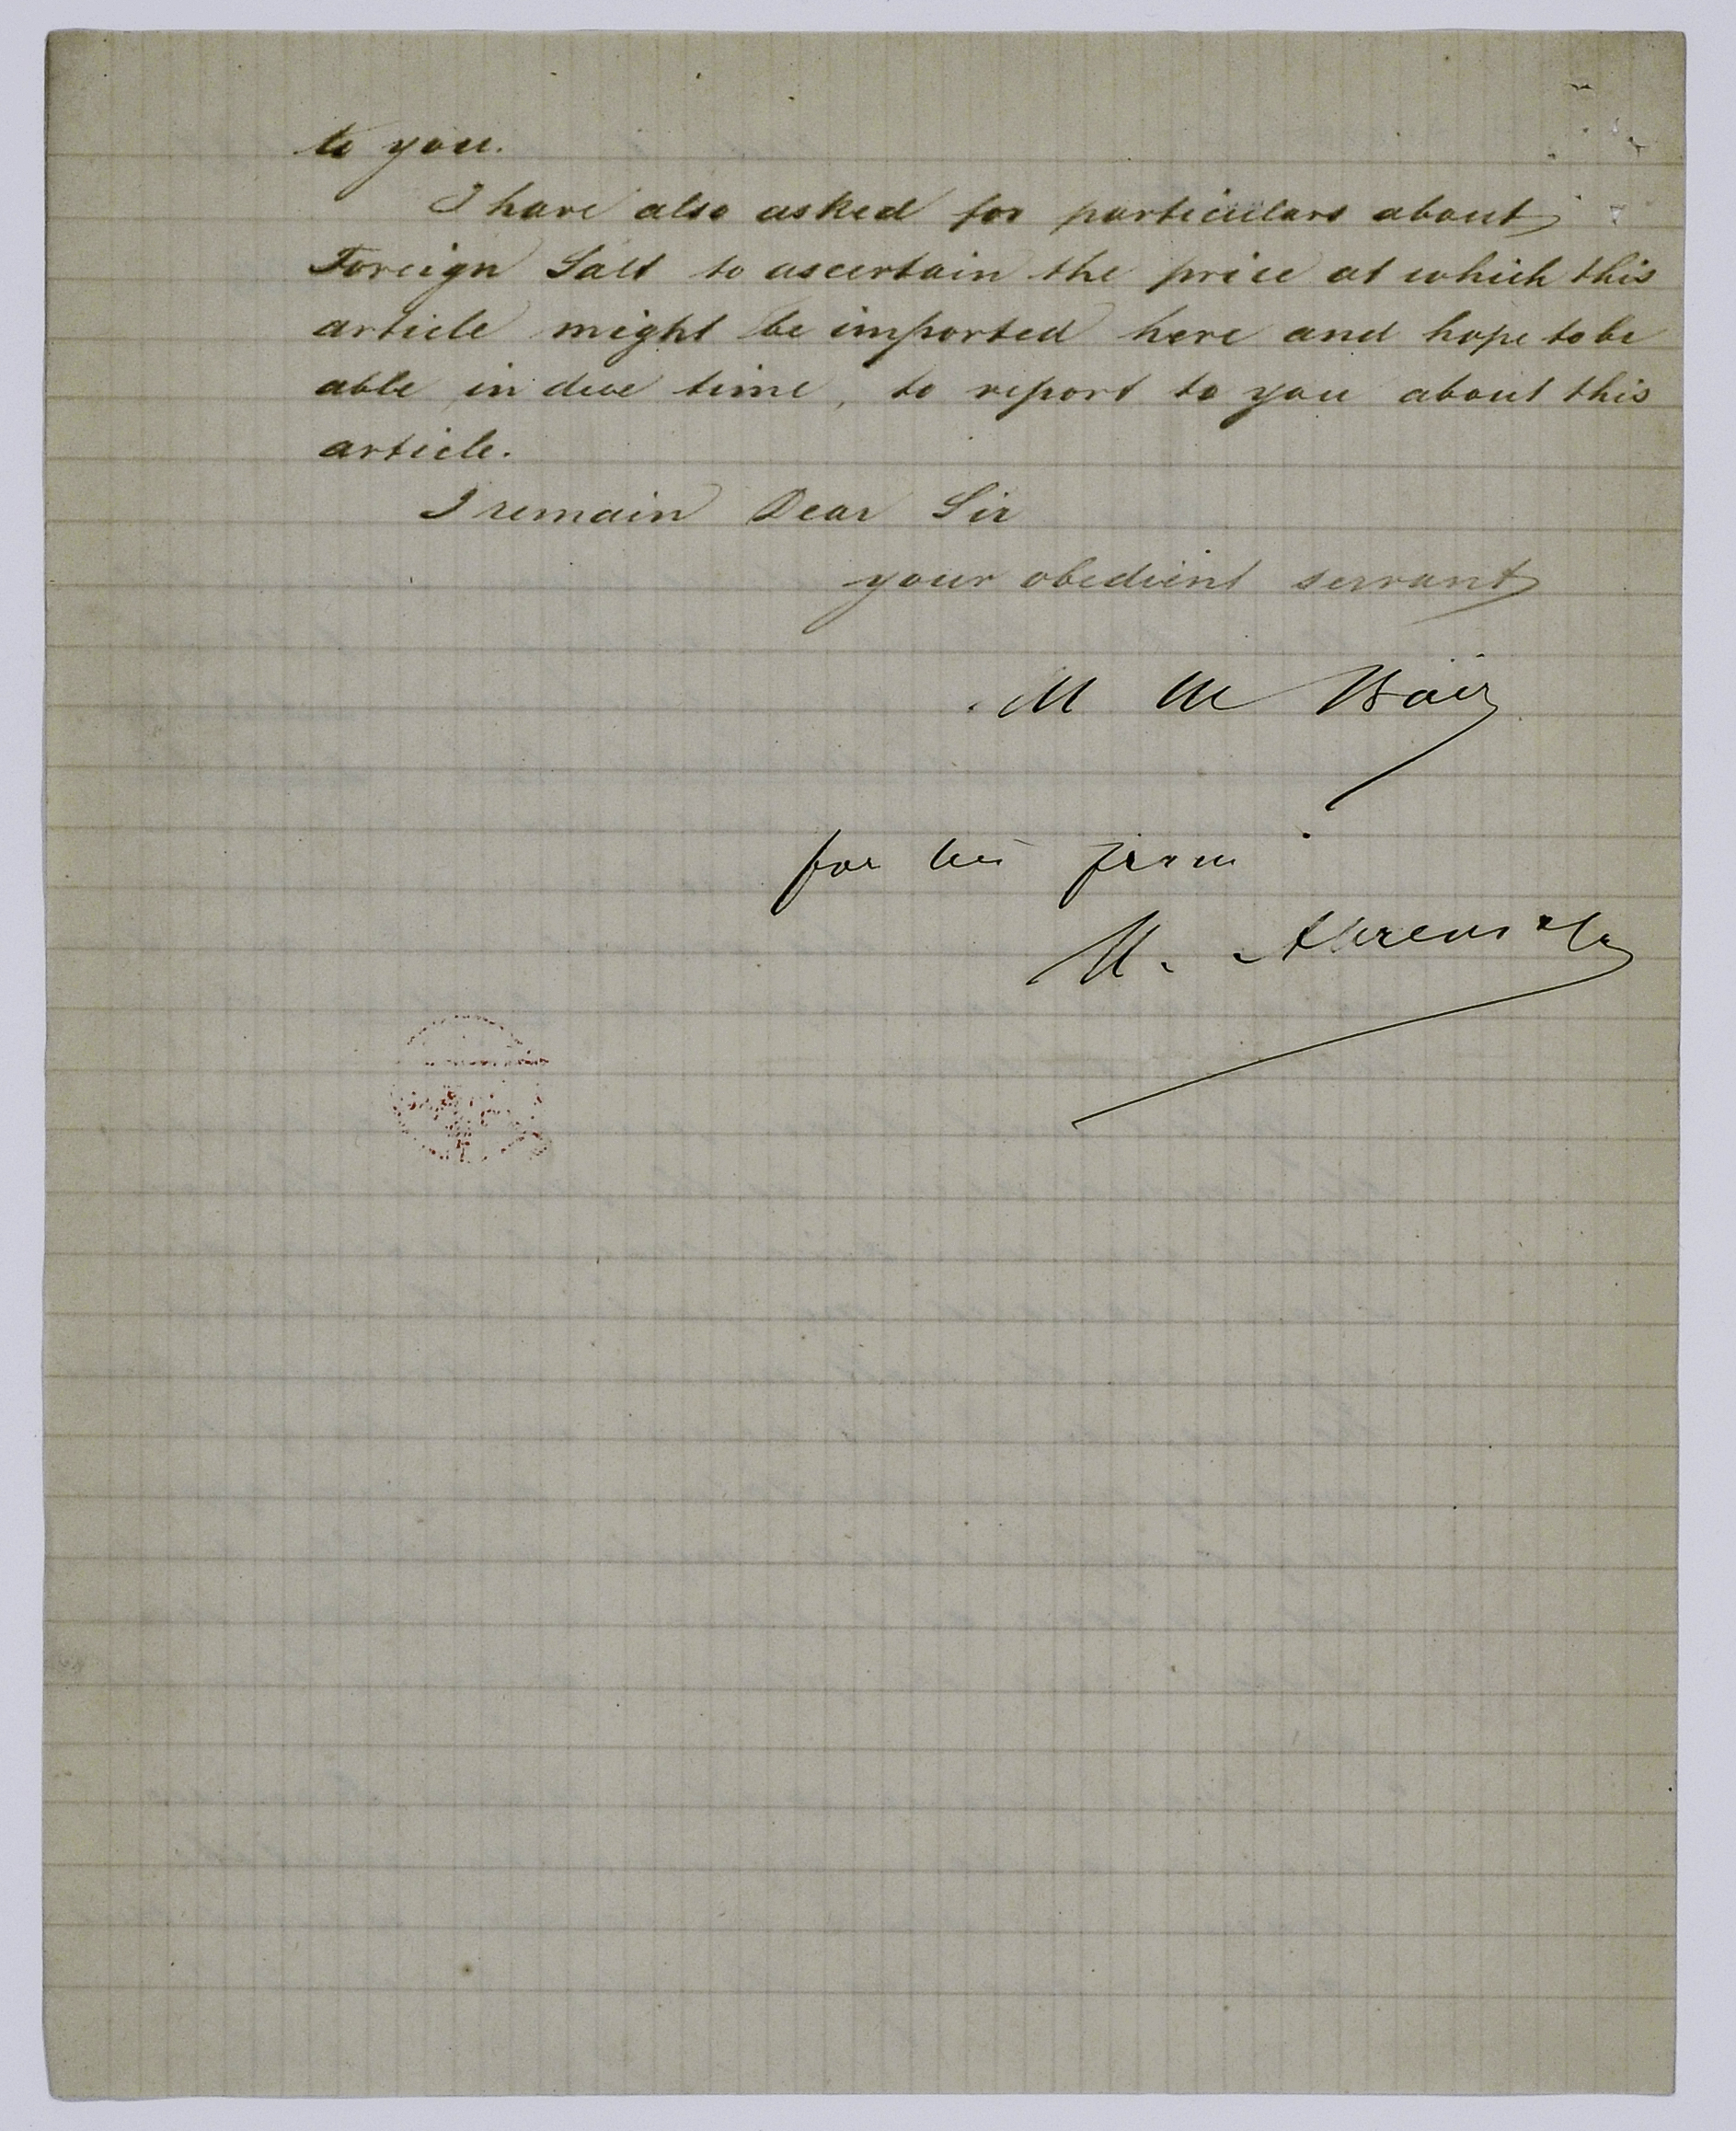 to you.
I have also asked for particulars about
Foreign Salt to ascertain the price at which this
article might be imported here and hope to be
able in due time, to report to you about this
article.
I remain Dear Sir
your obedient servant
M M Bair
for his firm
H. Ahrens & Co